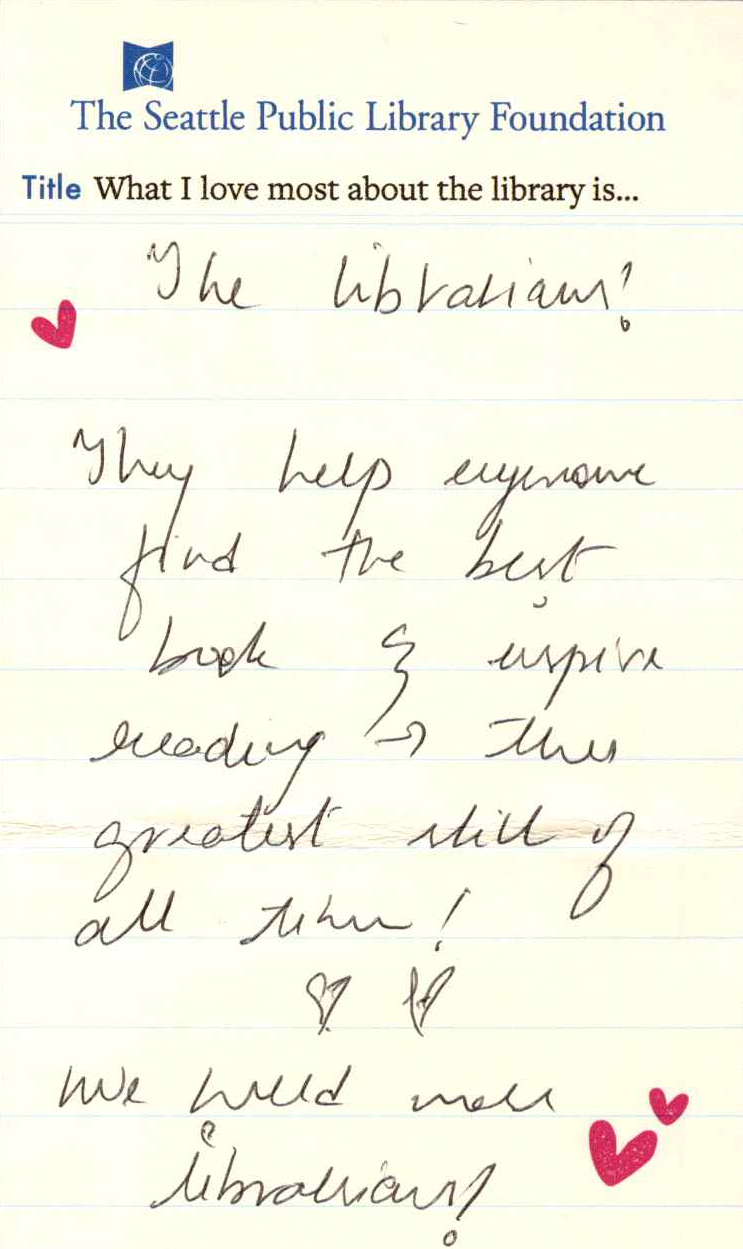 The Seattle Public Library Foundation
Title What I love most about the library is...
The librarians!
They help everyone
find the best
book & inspire
reading → the
greatest skill of
all time!
We need more
librarians!